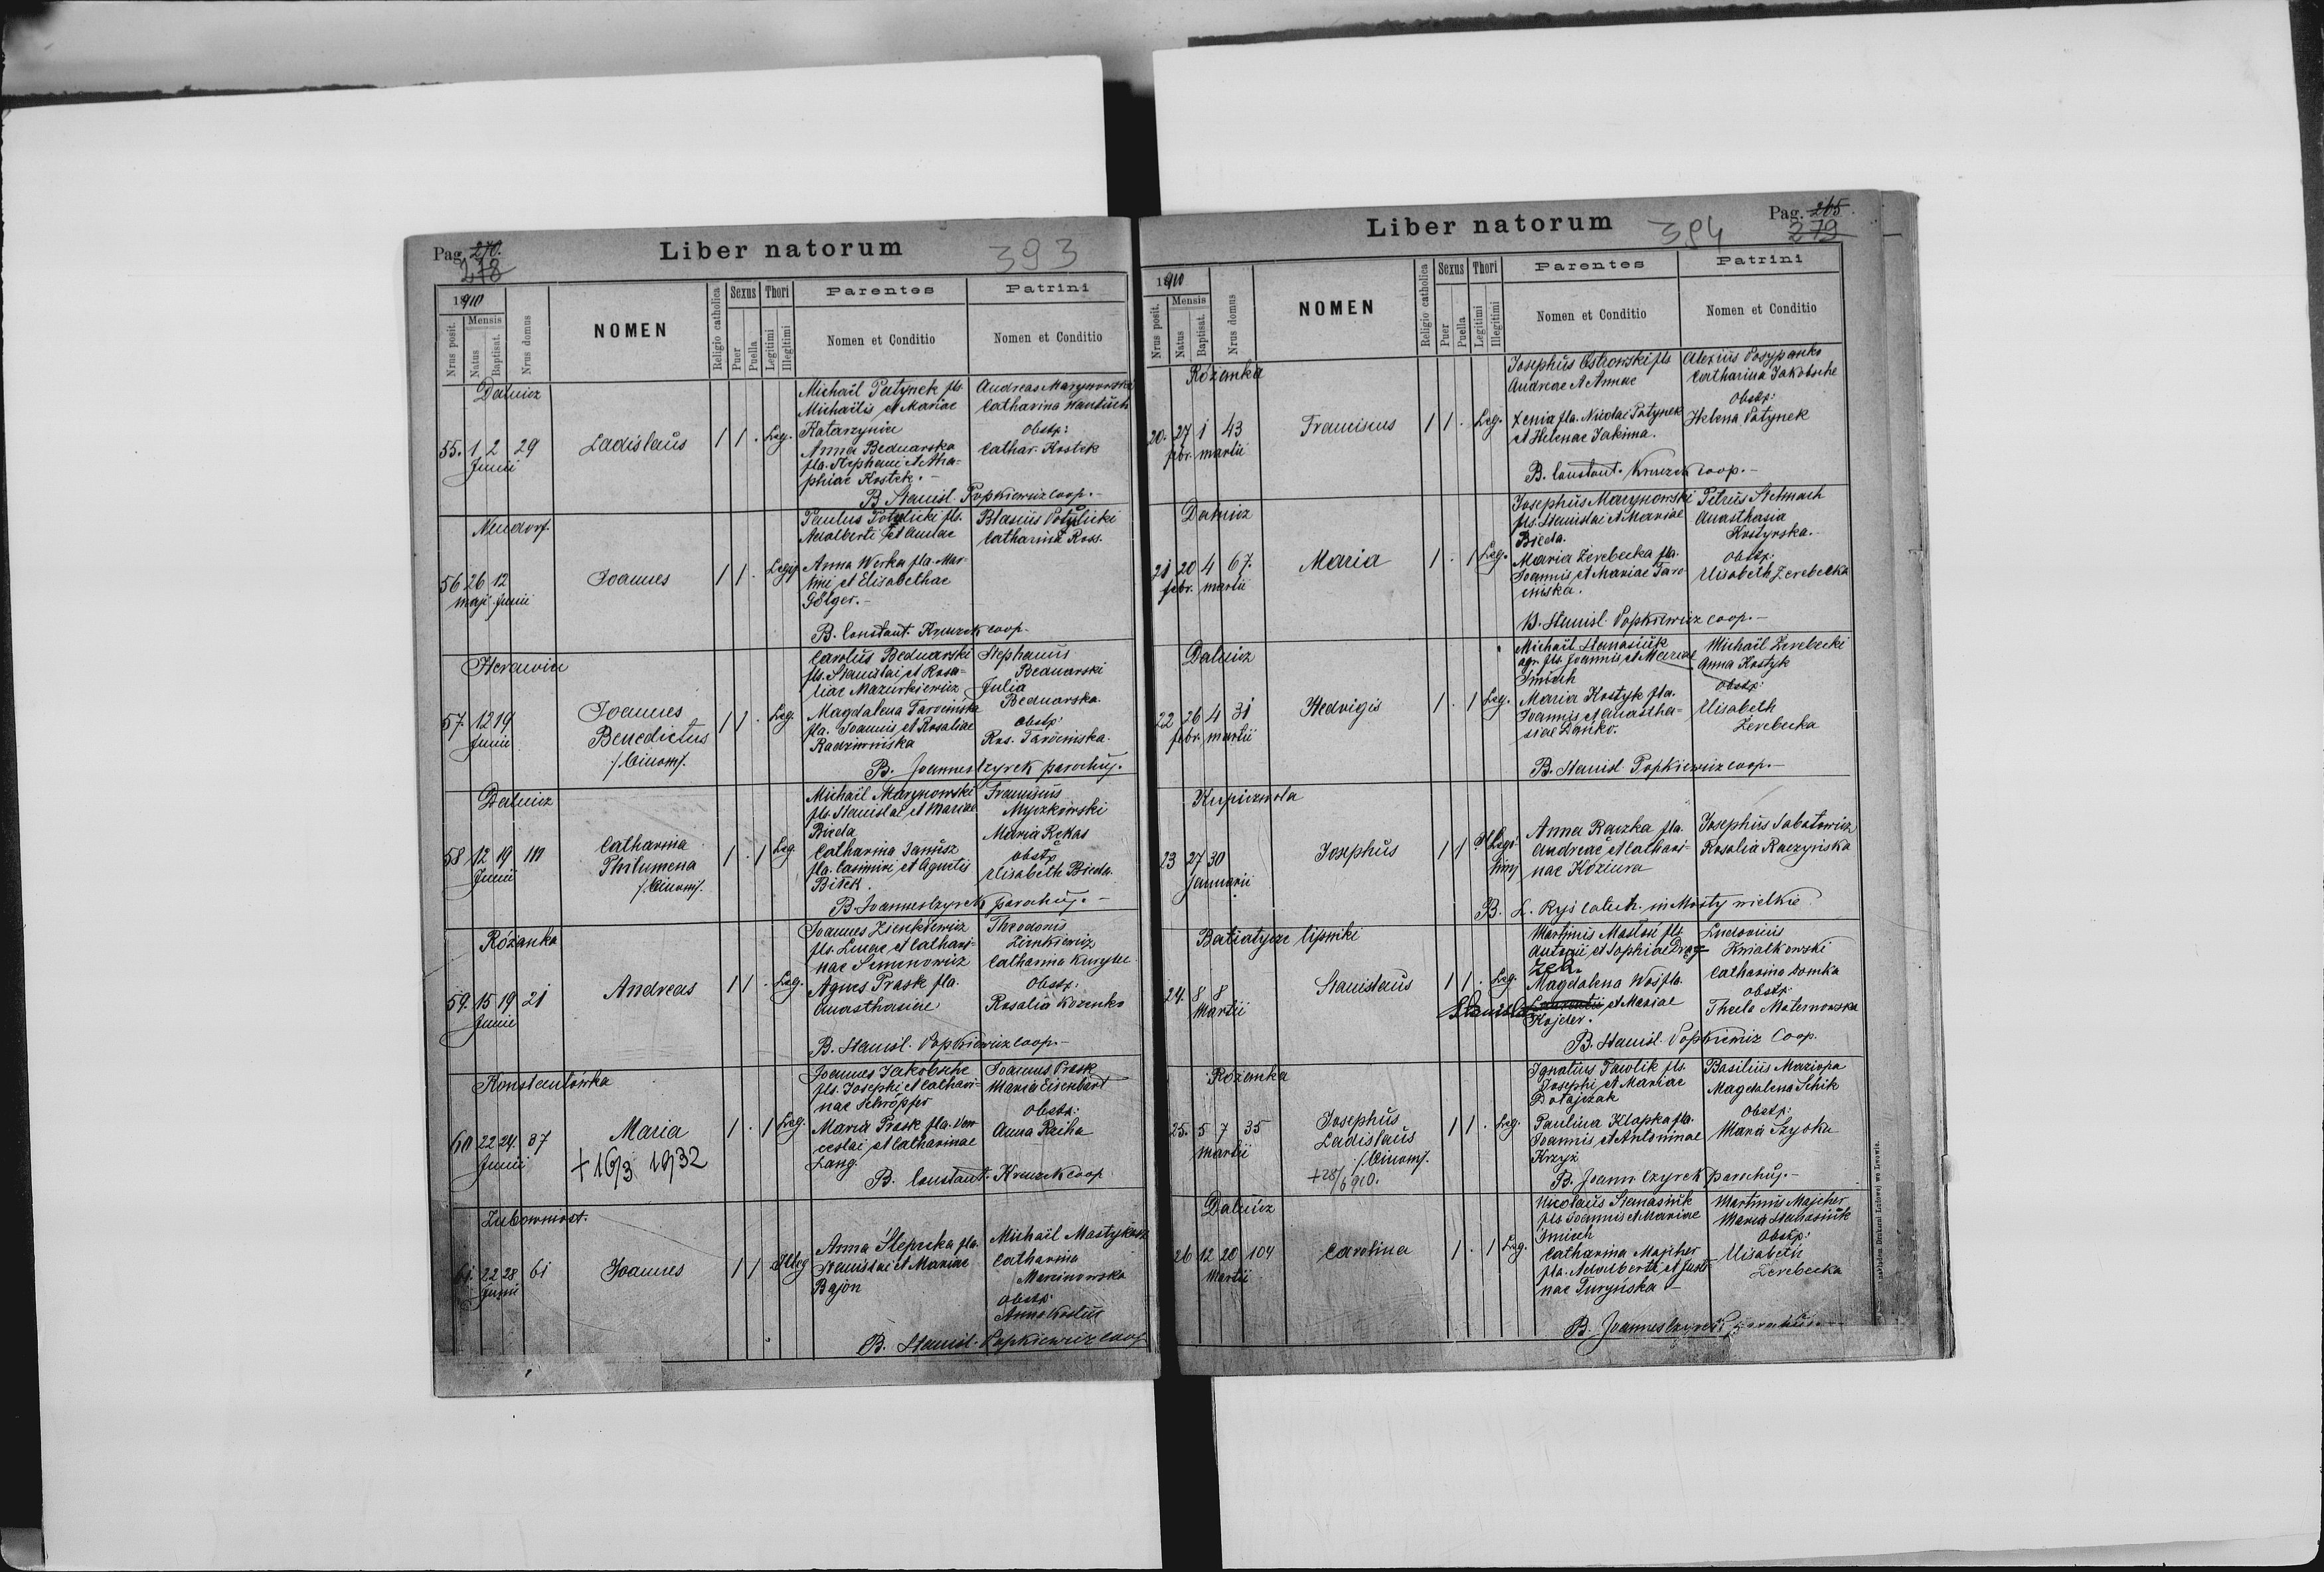 Pag. 270.
278
Liber natorum
393
1910
Nrus posit.
Mensis
Natus
Baptisat.
Nrus domus
NOMEN
Religio catholica
Sexus
Puer
Puella
Thori
Legitimi
Illegitimi
Parentes
Nomen et Conditio
Patrini
Nomen et Conditio
Dalnicz
55. 1 2 29
Junii
Ladislaus
1 1 . Leg.
Michaël Patynek fls.
Michaëlis et Mariae
Katarzynicz
Anna Bednarska
fla. Stephani et Aga-
phiae Kostek.
Andreas Marynowski
Catharina Hantisch
Obstx:
Cathar. Kostek
B. Stanisl. Popkiewicz coop.-
Neudorf.
56 26 12
maji Junii
Joannes
1 1 .
Paulus Potylicki fls.
Adalberti et Annae
Anna Werka fla. Mar-
tini et Elisabethae
Gölger.-
Blasius Potylicki
Catharina Ross.
B. Constant. Kruczek coop.
57. 12 19
Junii
Joannes
Benedictus
/binom/.
1 1 . Leg.
Carolus Bednarski
fls. Stanislai et Rosa-
liae Mazurkiewicz
Magdalena Tarcińska
fla. Joannis et Rosaliae
Radzimińska
Stephanus
Bednarski
Julia
Bednarska
Obstx:
Ros. Tarcińska.
B. Joannes Czyrek parochus.
Dalnicz
58 12 19 111
Junii
Catharina
Philumena
/binom/.
1 . 1 Leg.
Michaël Marynowski
fls. Stanislai et Mariae
Bieda
Catharina Janisz
fla. Casimiri et Agnetis
Bitek.
Franciscus
Myszkowski
Maria Rekas
Obstx
Elisabeth Bieda.
B. Joannes Czyrek parochus.-
Różanka
59. 15 19 21
Junii
Andreas
1 1 . Leg.
Joannes Zienkiewicz
fls. Lucae et Cathari-
nae Semenowicz
Agnes Prask fla.
Anasthasiae
Theodorus
Zienkiewicz
Catharina Kurylec
Obstx:
Rosalia Kozenko
B. Stanisl. Popkiewicz coop.-
Konstantówka
60 22 24. 87
Junii
Maria
+ 16/3 1932
1 . 1 Leg.
Joannes Jakobsche
fls. Josephi et Cathari-
nae Schröpfer
Maria Prask fla. Ven-
ceslai et Catharinae
Lang.
Joannes Prask
Maria Eisenbart
Obstx:
Anna Raiha
B. Constant. Kruczek coop
Zubowmost.
61. 22 28 61
Junii
Joannes
1 1 Illeg
Anna Slepecka fla.
Stanislai et Mariae
Bajon
Michaël Mastykasz
Catharina
Marinowska
Obstx:
Anna Kostiuk
B. Stanisl. Popkiewicz coop
Liber natorum
394
Pag. 265.
279
1910
Nrus posit.
Mensis
Natus
Baptisat.
Nrus domus
NOMEN
Religio catholica
Sexus
Puer
Puella
Thori
Legitimi
Illegitimi
Parentes
Nomen et Conditio
Patrini
Nomen et Conditio
Różanka
20. 27 1 43
febr. martii
Franciscus
1 1 . Leg.
Josephus Ostrowski fls
Andreae et Annae
Xenia fla. Nicolai Patynek
et Helenae Jakima.
Alexius Posypanko
Catharina Jakobsche
Obstx:
Helena Patynek
B. Constant. Kruczek coop.-
Dalnicz
21 20 4 67.
febr. martii
Maria
1 . 1 Leg.
Josephus Marynowski
fls. Stanislai et Mariae
Bieda.
Maria Zerebecka fla.
Joannis et Mariae Tar-
cińska.
Petrus Stelmach
Anasthasia
Kostyrska.
Obstx:
Elisabeth Zerebecka
B. Stanisl. Popkiewicz coop.-
Dalnicz
22 26 4 31
febr. martii
Hedvigis
1 . 1 Leg.
Michaël Stanasiuk
agr. fls. Joannis et Mariae
Smich
Maria Kostyk fla.
Joannis et Anastha-
siae Danko.
Michaël Zerebecki
Anna Kostyk
Obstx:
Elisabeth
Zerebecka
B. Stanisl. Popkiewicz coop.-
Kupiczwola
23 27 30
Januarii
Josephus
1 1
Anna Raczka fla.
Andreae et Cathari-
nae Koziura
Josephus Sabatowicz
Rosalia Raczyńska
B. L. Ryś catech. in Mosty wielkie
Batiatycze lipniki
24. 8 8
Martii
Stanislaus
1 1 . Leg.
Martinus Masłoń fls
Antonii et Sophiae
Magdalena Woś fla.
Stanislai Laurentii et Mariae
Kojder.
Ludovicus
Kwiatkowski
Catharina Domka
Obstx:
Thecla Maternowska
B. Stanisl. Popkiewicz coop.
Różanka
25. 5 7 35
martii
Josephus
Ladislaus
/binom/.
+28/6 910.
1 1 . Leg.
Ignatius Pawlik fls.
Josephi et Mariae
Potajczak
Paulina Klapka fla.
Joannis et Antoninae
Krzyż
Basilius Maziopa
Magdalena Schik
Obstx:
Maria Szyoka
B. Joann. Czyrek parochus.-
Dalnicz
26 12 20 104
Martii
Carolina
1 . 1 Leg.
Nicolaus Stanasiuk
fls Joannis et Mariae
Smich
Catharina Majcher
fla. Adalberti et Justi-
nae Turyńska
Martinus Majcher
Maria Stanasiuk
Obstx:
Elisabeth
Zerebecka
B. Joannes Czyrek parochus.
Nakładem Drukarni Ludowej we Lwowie.